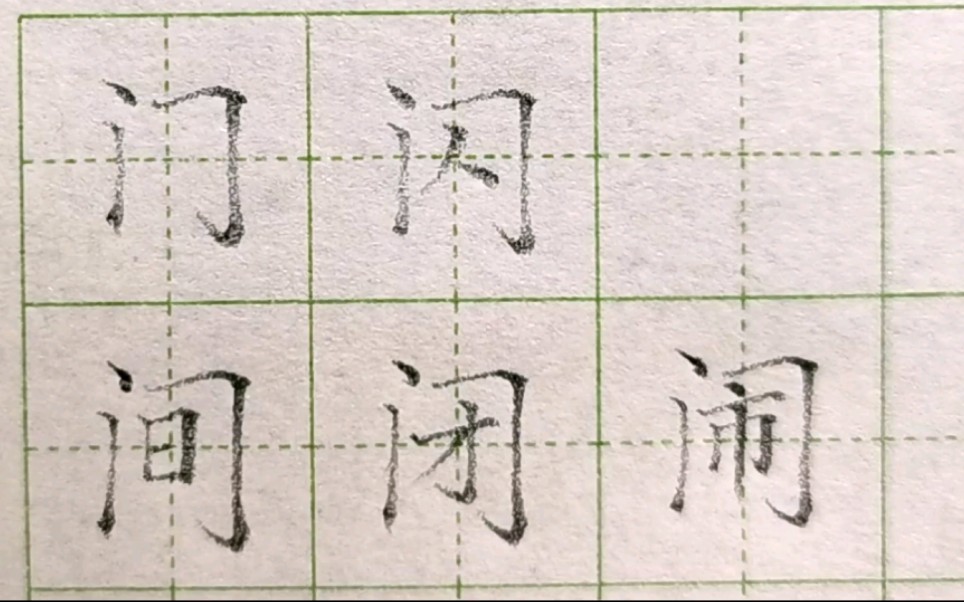 门闪
间闭闹